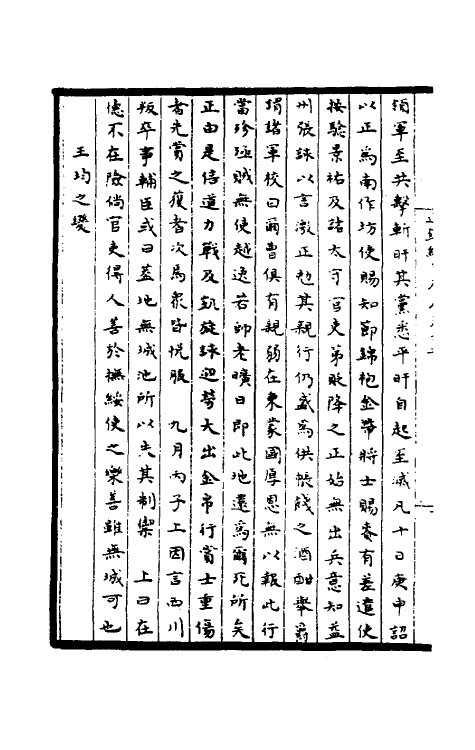 領軍至共擊斬旰其黨悉平旰自起至滅凡十日庚申詔
以正為南作坊使賜知節錦袍金帶將士賜賚有差遣使
按驗景祐及諸太可官吏第敗降之正始無出兵意知益
州張詠以言激正勉其親行仍盛為供帳餞之酒酣舉爵
謂諸軍校曰爾曹俱有親弱在東蒙國厚恩無以報此行
當殄殛賊無使越逸若師老曠日即此地還為爾死所矣
正由是倍道力戰及凱旋詠迎勞大出金帛行賞士重傷
者先賞之獲者次焉衆皆悦服　九月丙子上因言西川
叛卒事輔臣或曰蓋地無城池所以失其制禦　上曰在
德不在險倘官吏得人善於撫綏使之樂善雖無城可也
王均之變